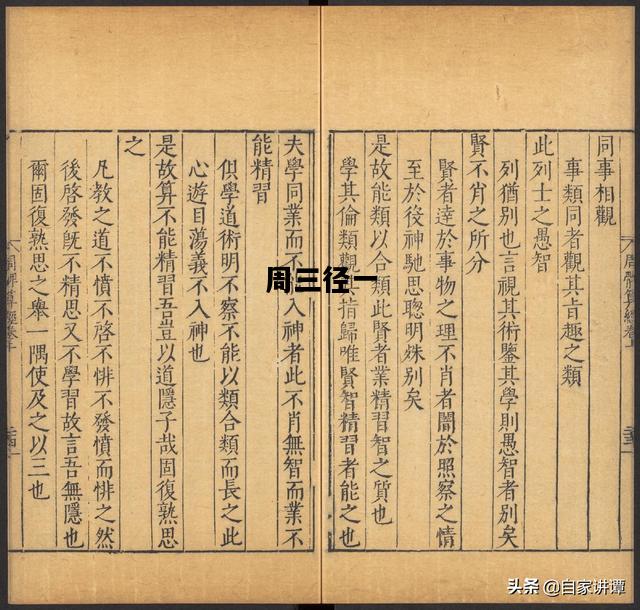 同事相觀
事類同者觀其旨趣之類
此列士之愚智
列猶別也言視其術鑒其學則愚智者別矣
賢不肖之所分
賢者達於事物之理不肖者闇於照察之情
至於役神馳思聰明殊別矣
是故能類以合類此賢者業精習智之質也
學其倫類觀其指歸唯賢智精習者能之也
周三径一
夫學同業而不入神者此不肖無智而業不
能精習
但學道術明不察不能以類合類而長之此
心遊目蕩義不入神也
是故算不能精習吾豈以道隱子哉固復熟思
之
凡教之道不憤不啓不悱不發憤而悱之然
後啓發旣不精思又不學習故言吾無隱也
爾固復熟思之舉一隅使及之以三也
头条 @自家讲谭